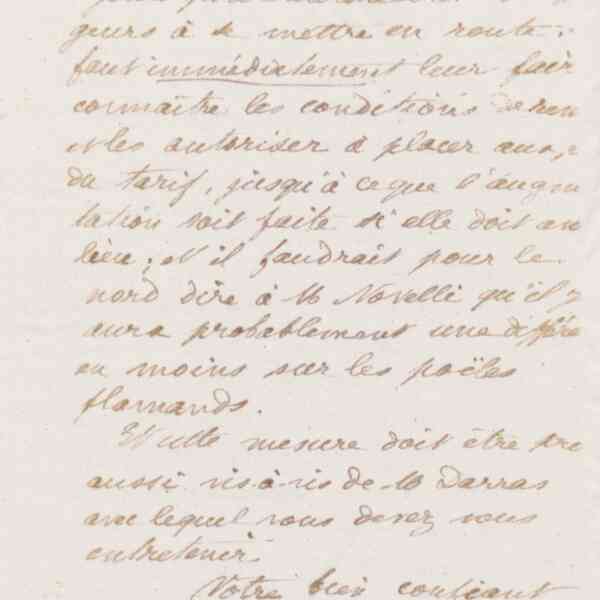 geurs à se mettre en route.
faut immédiatement leur fair
connaître les conditions de ren
et les autoriser à placer aux
du tarif, jusqu'à ce que l'augm
tation soit faite si elle doit av
lieu; et il faudrait pour le
nord dire à M Novelli qu'il y
aura probablement une différe
en moins sur les poëles
flamands.
Et cette mesure doit être pre
aussi vis-à-vis de M Darras
avec lequel vous devez vous
entretenir.
Votre bien confiant